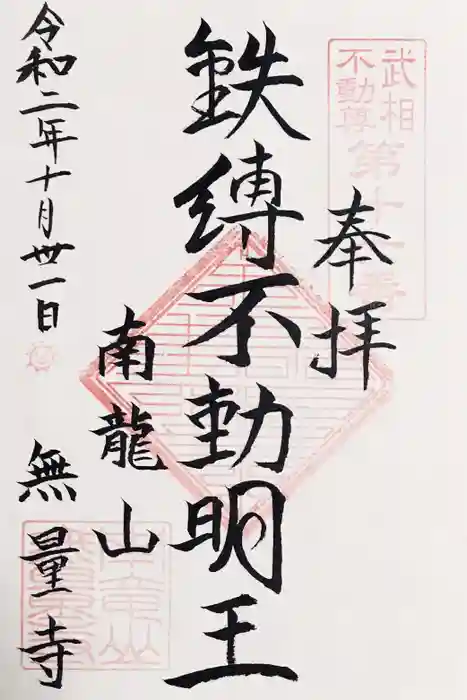 武相
不動尊
第十一番
奉拝
鉄縛不動明王
南龍山
無量寺
令和二年十月卅一日